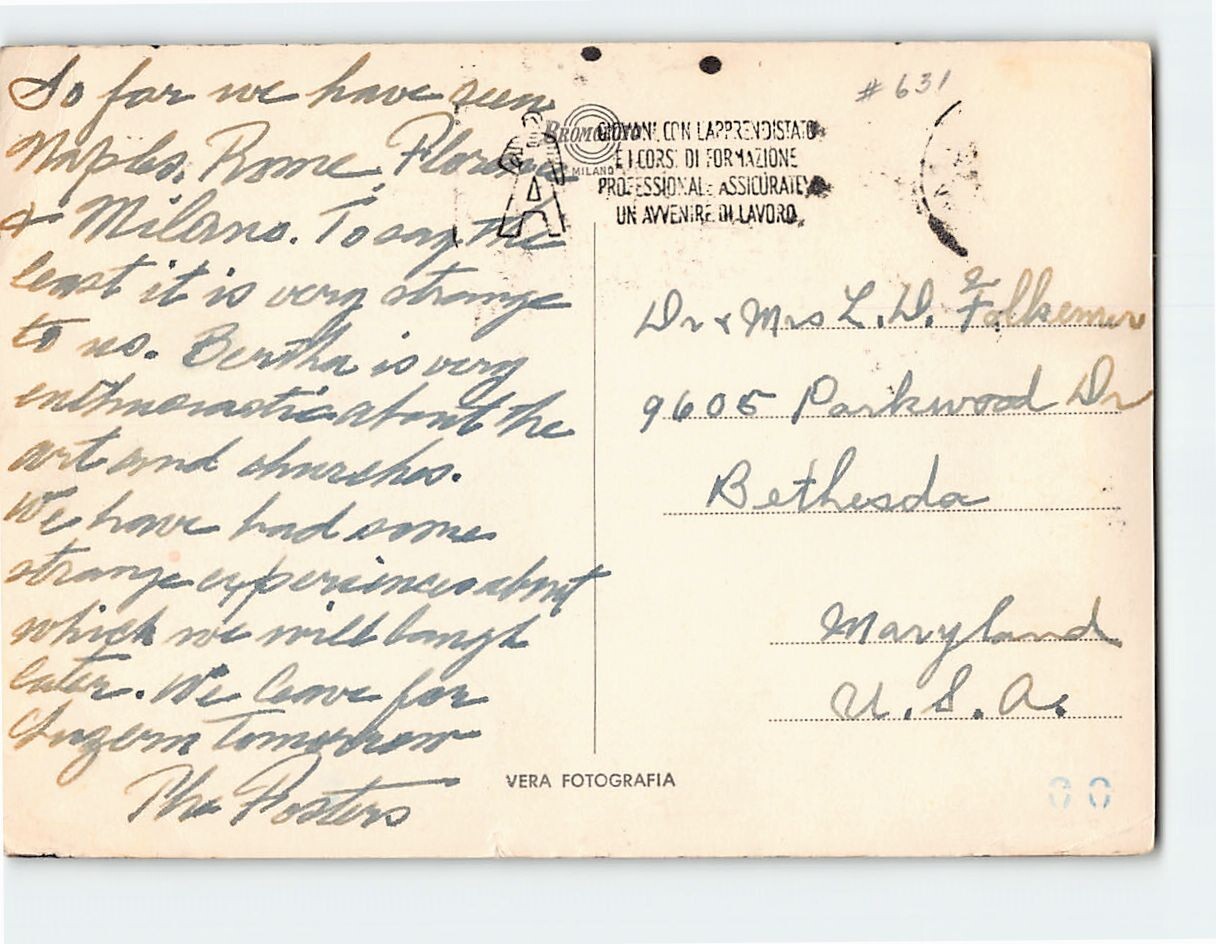 So far we have seen
Naples, Rome, Florence
& Milano. To say the
least it is very strange
to us. Bertha is very
enthusiastic about the
art and churches.
We have had some
strange experiences about
which we will laugh
later. We leave for
Luzern tomorrow
The Posters
BROMOFOTO
MILANO
GIOVANI CON L'APPRENDISTATO
E I CORSI DI FORMAZIONE
PROFESSIONALE ASSICURATEVI
UN AVVENIRE DI LAVORO
# 631
Dr & Mrs L. D. Folkemer
9605 Parkwood Dr
Bethesda
Maryland
U. S. A.
VERA FOTOGRAFIA
00